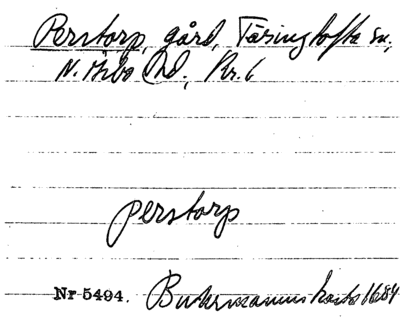 Perstorp, gård, Färingtofta sn,
N. Åsbo hd, Kr. l
perstorp
Nr 5494. Buhrmanns karta 1684